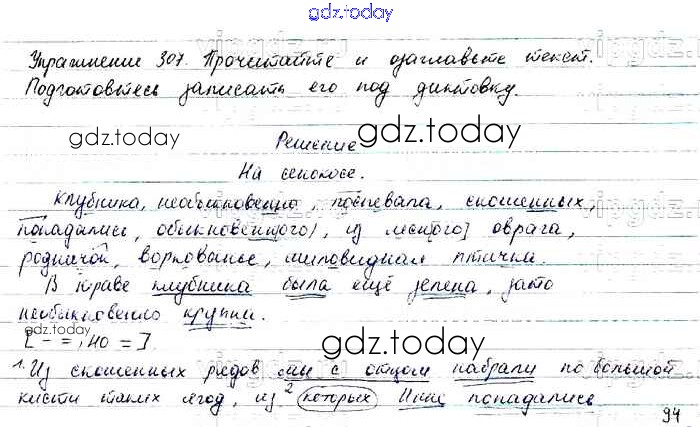 gdz.today
Упражнение 307. Прочитайте и озаглавьте текст.
Подготовьтесь записать его под диктовку.
gdz.today
gdz.today
Решение
На сенокосе.
Клубника, необыкновенно, поспевала, скошенных,
попадались, обыкновен(ного), из лес(ного) оврага,
родничок, воркованье, миловидная птичка.
В траве клубника была ещё зелена, зато
необыкновенно крупна.
gdz.today
gdz.today
[- = , но =]
1. Из скошенных рядов мы с отцом набрали по большой
кисти таких ягод, из 2 которых Иные попадались
gdz.today
94